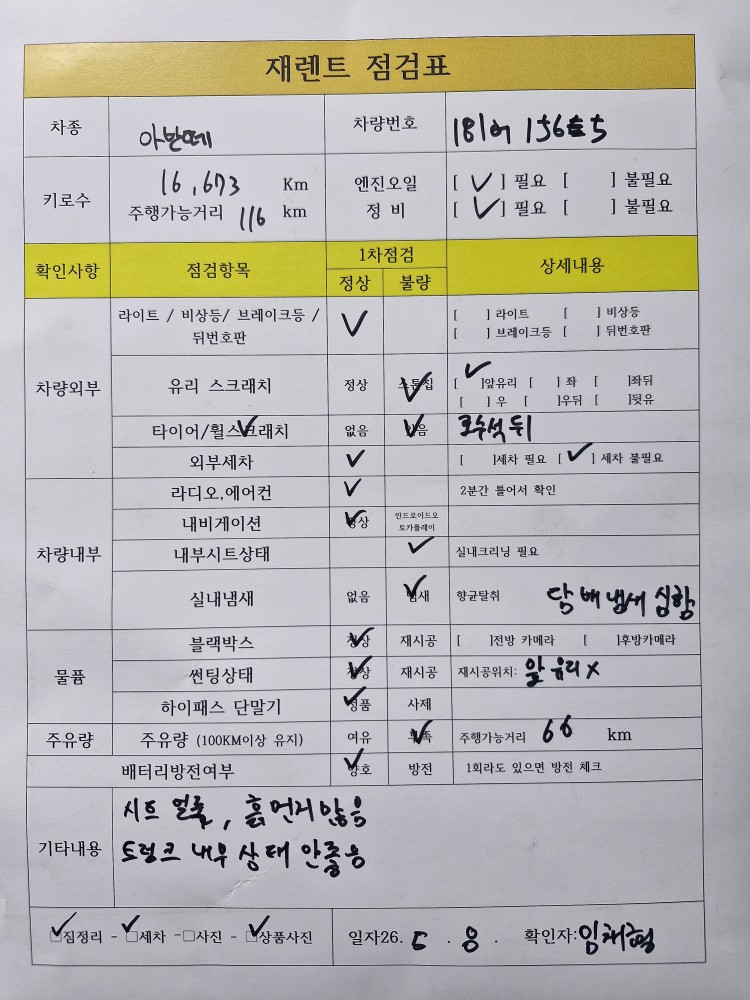 재렌트 점검표
차종 아반떼 차량번호 181어 1565
키로수 16,673 Km 엔진오일 [ ✓ ] 필요 [ ] 불필요
주행가능거리 116 km 정 비 [ ✓ ] 필요 [ ] 불필요
확인사항 점검항목 1차점검 상세내용
정상 불량
차량외부 라이트 / 비상등/ 브레이크등 / 뒤번호판 ✓ [ ] 라이트 [ ] 비상등
[ ] 브레이크등 [ ] 뒤번호판
유리 스크래치 정상 스톤칩 ✓ [ ✓ ]앞유리 [ ] 좌 [ ]좌뒤
[ ] 우 [ ]우뒤 [ ]뒷유
타이어/휠스크래치 ✓ 없음 있음 ✓ 조수석 뒤
외부세차 ✓ [ ]세차 필요 [ ✓ ] 세차 불필요
차량내부 라디오,에어컨 ✓ 2분간 틀어서 확인
내비게이션 정상 ✓ 안드로이드오
토카플레이
내부시트상태 ✓ 실내크리닝 필요
실내냄새 없음 냄새 ✓ 향균탈취 담배냄새 심함
물품 블랙박스 정상 ✓ 재시공 [ ]전방 카메라 [ ]후방카메라
썬팅상태 정상 ✓ 재시공 재시공위치: 앞유리 X
하이패스 단말기 정품 ✓ 사제
주유량 주유량 (100KM이상 유지) 여유 부족 ✓ 주행가능거리 66 km
배터리방전여부 양호 ✓ 방전 1회라도 있으면 방전 체크
기타내용 시트 얼룩, 흙먼지 많음
트렁크 내부 상태 안좋음
☑짐정리 - ☑세차 - □사진 - ☑상품사진 일자26. 5 . 8 . 확인자:임채혁